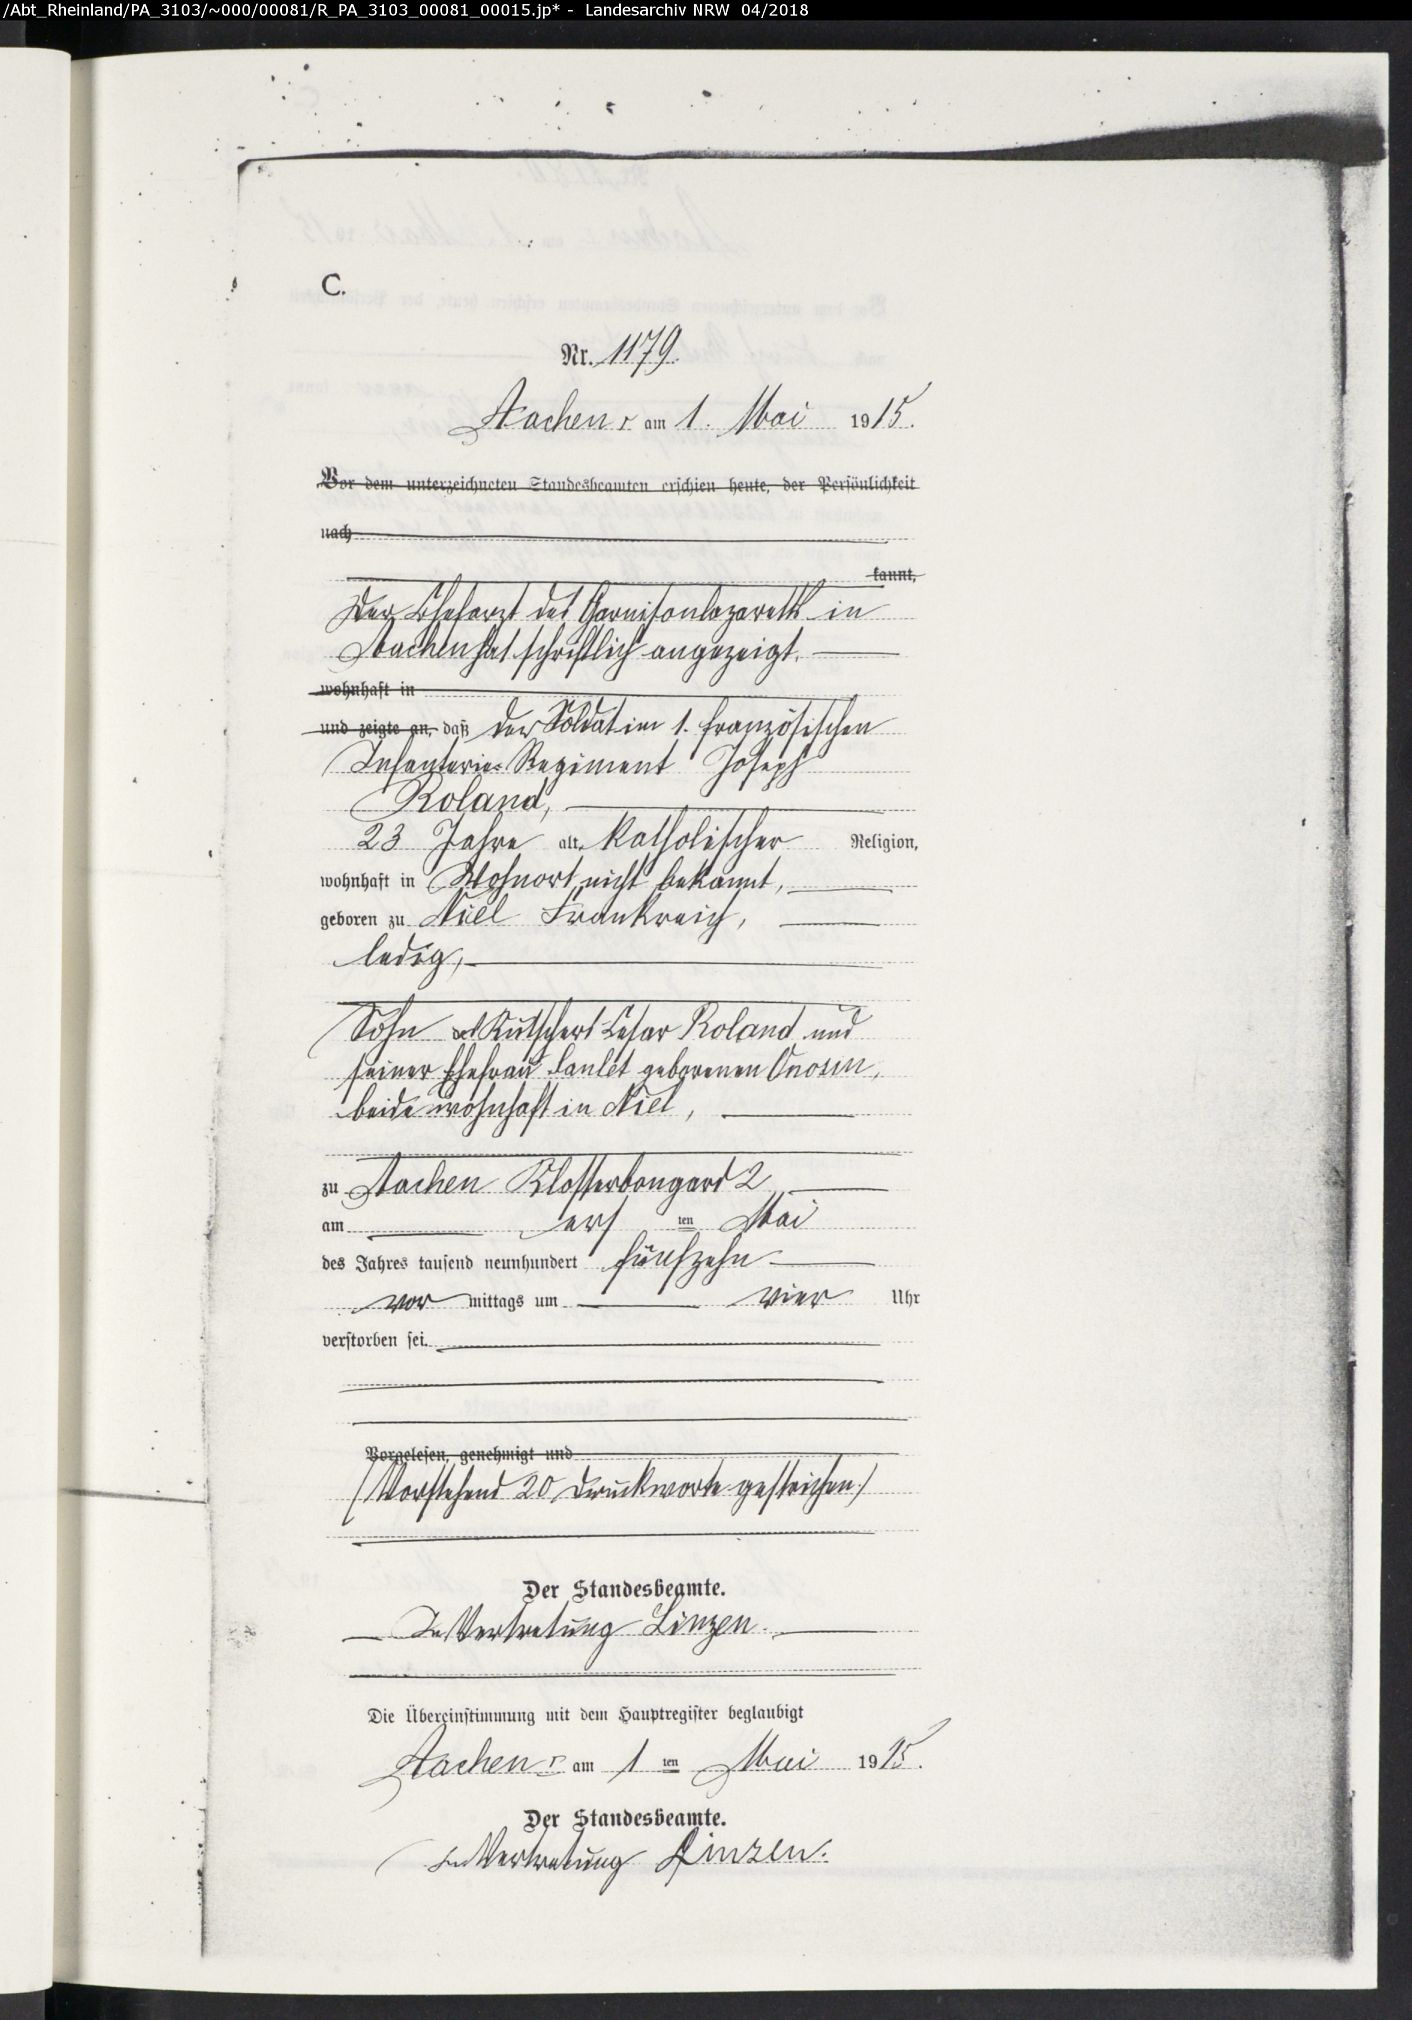 /Abt_Rheinland/PA_3103/~000/00081/R_PA_3103_00081_00015.jp* - Landesarchiv NRW 04/2018
C.
Nr. 1179.
Aachen, am 1. Mai 1915.
Vor dem unterzeichneten Standesbeamten erschien heute, der Persönlichkeit
nach
kannt,
Der Chefarzt des Garnisonlazaretts in
Aachen hat schriftlich angezeigt,
wohnhaft in
und zeigte an, daß der Soldat im 1. französischen
Infanterie-Regiment Joseph
Roland,
23 Jahre alt, katholischer Religion,
wohnhaft in Wohnort nicht bekannt,
geboren zu Niel Frankreich,
ledig,
Sohn des Kutschers Cesar Roland und
seiner Ehefrau geborenen
beide wohnhaft in Niel,
zu Aachen Klosterbongard 2
am ersten Mai
des Jahres tausend neunhundert fünfzehn
vor mittags um vier Uhr
verstorben sei.
Vorgelesen, genehmigt und
(Vorstehend 20 Druckworte gestrichen.)
Der Standesbeamte.
In Vertretung Linzen.
Die Übereinstimmung mit dem Hauptregister beglaubigt
Aachen, am 1 ten Mai 1915.
Der Standesbeamte.
In Vertretung Linzen.